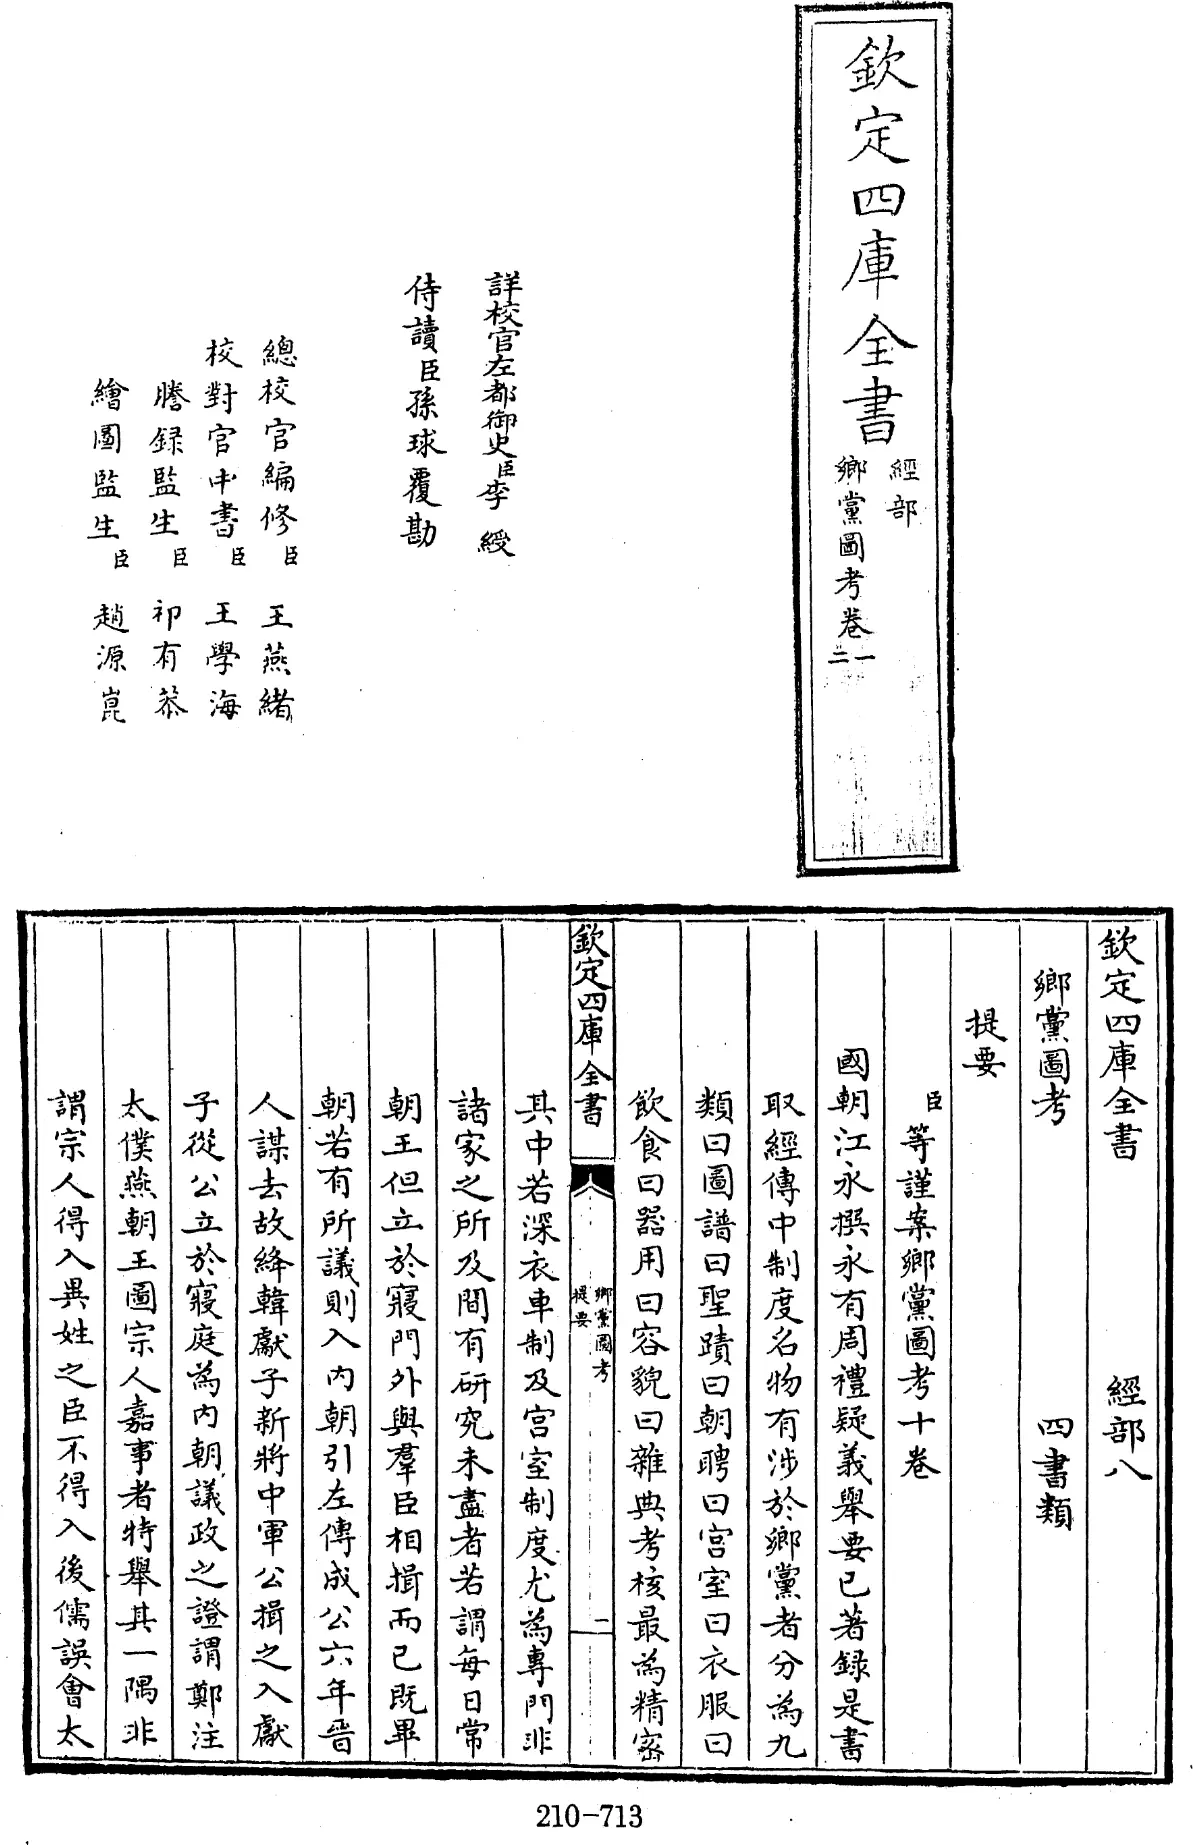 欽定四庫全書
經部
鄉黨圖考卷一
二
詳校官左都御史臣李綬
侍讀臣孫球覆勘
總校官編修臣王燕緒
校對官中書臣王學海
謄錄監生臣祁有恭
繪圖監生臣趙源崑
欽定四庫全書 經部八
鄉黨圖考 四書類
提要
臣等謹案鄉黨圖考十卷
國朝江永撰永有周禮疑義舉要已著録是書
取經傳中制度名物有涉於鄉黨者分為九
類曰圖譜曰聖蹟曰朝聘曰宮室曰衣服曰
飲食曰器用曰容貌曰雜典考核最為精密
欽定四庫全書
鄉黨圖考
提要
一
其中若深衣車制及宮室制度尤為專門非
諸家之所及間有研究未盡者若謂每日常
朝王但立於寢門外與羣臣相揖而已既畢
朝若有所議則入内朝引左傳成公六年晉
人謀去故絳韓獻子新將中軍公揖之入獻
子從公立於寢庭為内朝議政之證謂鄭注
太僕燕朝王圖宗人嘉事者特舉其一隅非
謂宗人得入異姓之臣不得入後儒誤會太
210-713